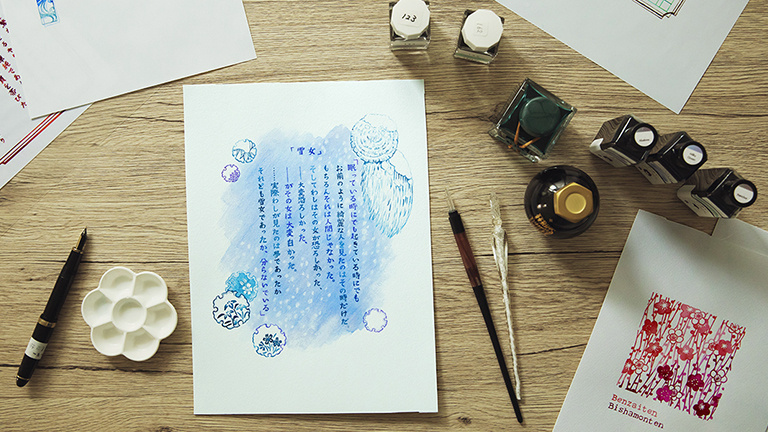 「雪女」
「眠っている時にでも起きている時にでも
お前のように綺麗な人を見たのはその時だけだ
もちろんそれは人間じゃなかった。
そしてわしはその女が恐ろしかった。
――大変恐ろしかった。
――がその女は大変白かった。
……実際わしが見たのは夢であったか
それとも雪女であったか、分らないでいる」
123
Benzaiten
Bishamonten